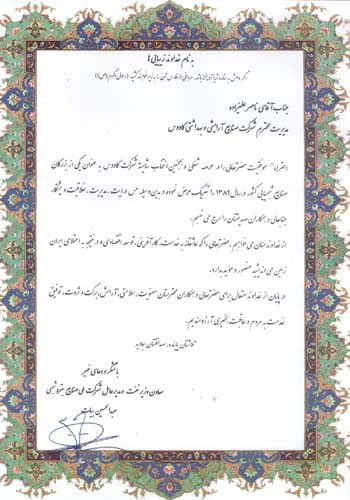 به نام خداوند زیبایی ها
اگر دانش به ستاره ثریا آویخته باشد، مردانی از فارس آن را به زیر خواهند کشید. (رسول مکرم (ص))
جناب آقای ناصر علیزاده
مدیریت محترم شرکت صنایع آرایشی و بهداشتی کادوس
احتراماً موفقیت حضرتعالی را در عرصه شغلی و همچنین انتخاب شایسته شرکت کادوس به عنوان یکی از بزرگان
صنایع شیمیایی کشور در سال ۱۳۸۹ را تبریک عرض نموده و بدین وسیله حس درایت، مدیریت، خلاقیت و پشتکار
جنابعالی و همکاران صدیقتان را ارج می نهیم.
از خداوند منان می خواهیم، حضرتعالی را که عاشقانه به خدمت، کارآفرینی، توسعه اقتصادی و در نتیجه به اعتلای ایران
زمین می اندیشید منصور و موید بدارد.
در پایان از خداوند متعال برای حضرتعالی و همکاران محترمتان معنویت، سلامتی، آرامش، برکت و ثروت، توفیق
خدمت به مردم و عاقبت بخیری آرزومندیم.
تلاشتان پاینده، صداقتتان جاوید
با تشکر و دعای خیر
معاون وزیر نفت و مدیرعامل شرکت ملی صنایع پتروشیمی
عبدالحسین بیات